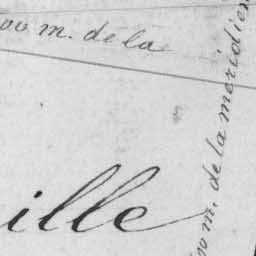 00 m. de la
ille
00 m. de la meridien